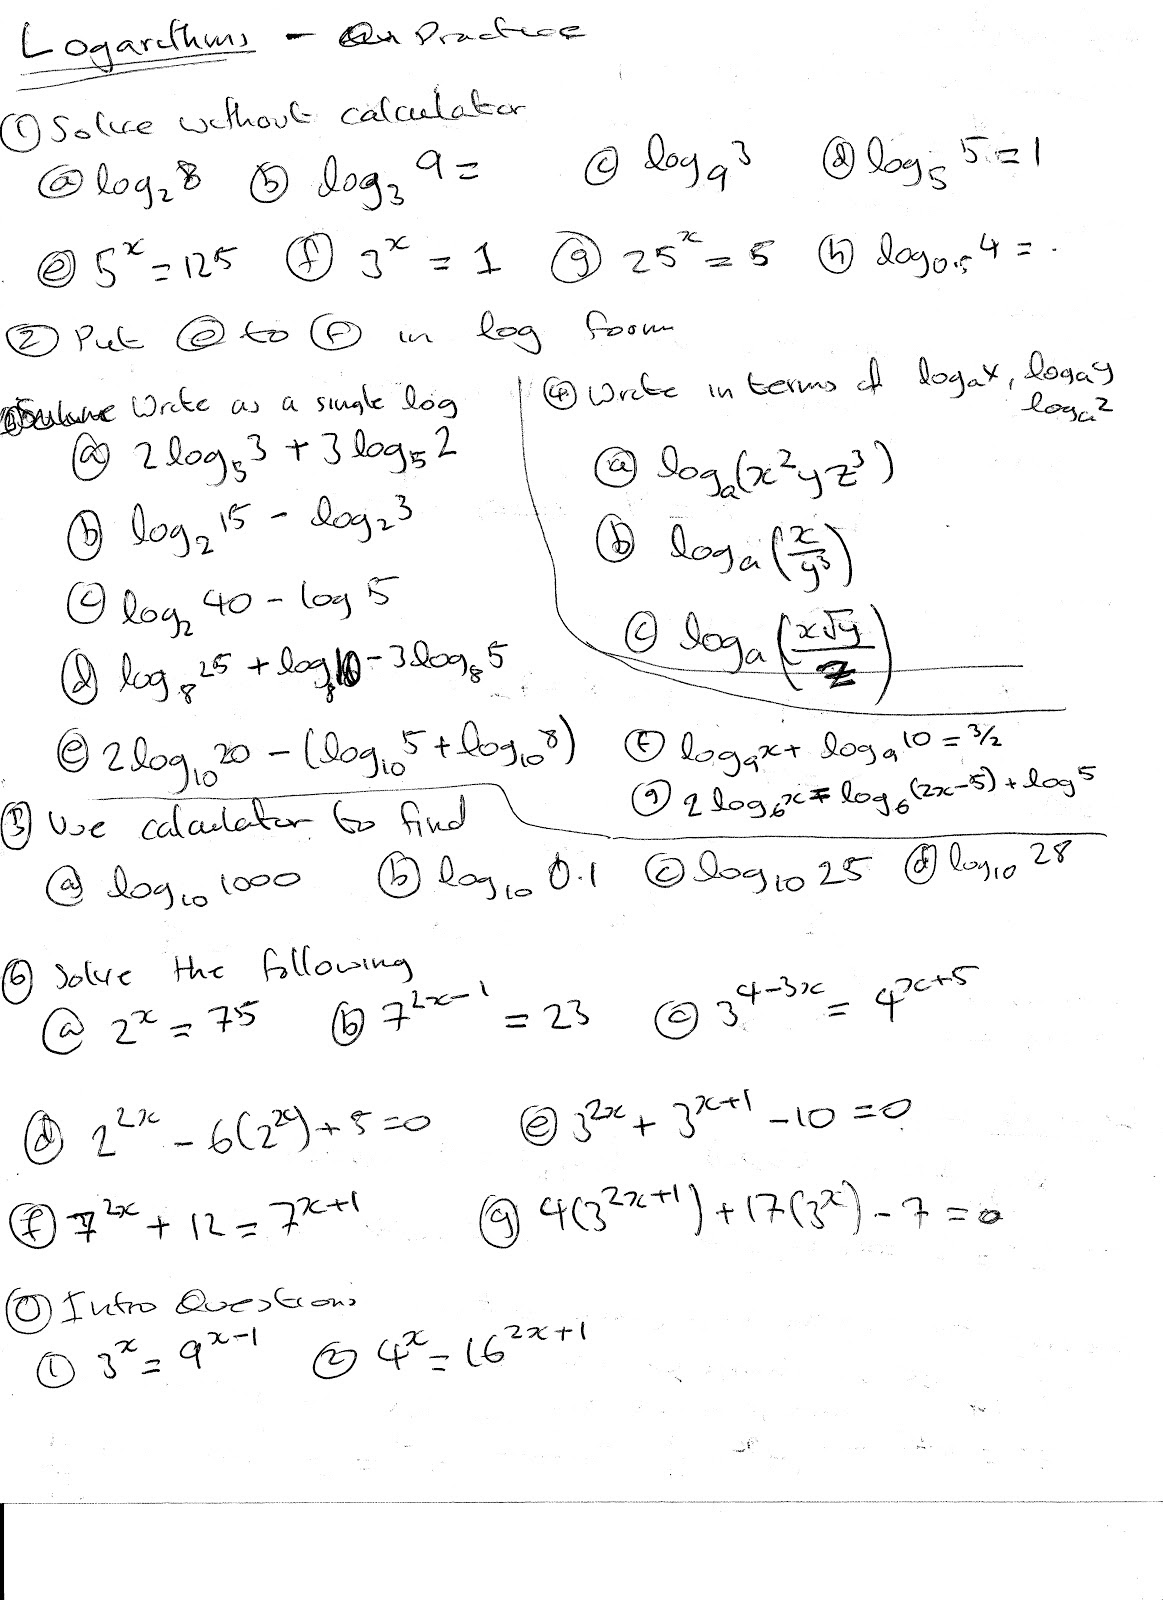 Logarithms - Practice
① Solve without calculator
ⓐ log₂8 ⓑ log₃9 = ⓒ log₉3 ⓓ log₅5 = 1
ⓔ 5ˣ = 125 ⓕ 3ˣ = 1 ⓖ 25ˣ = 5 ⓗ log₀.₅4 = .
② Put ⓔ to ⓕ in log form
Write as a single log
ⓐ 2log₅3 + 3log₅2
ⓑ log₂15 - log₂3
ⓒ log₂40 - log 5
ⓓ log₈25 + log₈10 - 3log₈5
ⓔ 2log₁₀20 - (log₁₀5 + log₁₀8)
④ Write in terms of logₐx, logₐy
logₐz
ⓐ logₐ(x²yz³)
ⓑ logₐ(x/y³)
ⓒ logₐ(x√y/z)
ⓕ log₉x + log₉10 = 3/2
ⓖ 2log₆x = log₆(2x-5) + log 5
⑤ Use calculator to find
ⓐ log₁₀1000 ⓑ log₁₀0.1 ⓒ log₁₀25 ⓓ log₁₀28
⑥ Solve the following
ⓐ 2ˣ = 75 ⓑ 7²ˣ⁻¹ = 23 ⓒ 3⁴⁻³ˣ = 4ˣ⁺⁵
ⓓ 2²ˣ - 6(2ˣ) + 5 = 0 ⓔ 3²ˣ + 3ˣ⁺¹ - 10 = 0
ⓕ 7²ˣ + 12 = 7ˣ⁺¹ ⓖ 4(3²ˣ⁺¹) + 17(3ˣ) - 7 = 0
⓪ Intro Questions
① 3ˣ = 9ˣ⁻¹ ② 4ˣ = 16²ˣ⁺¹